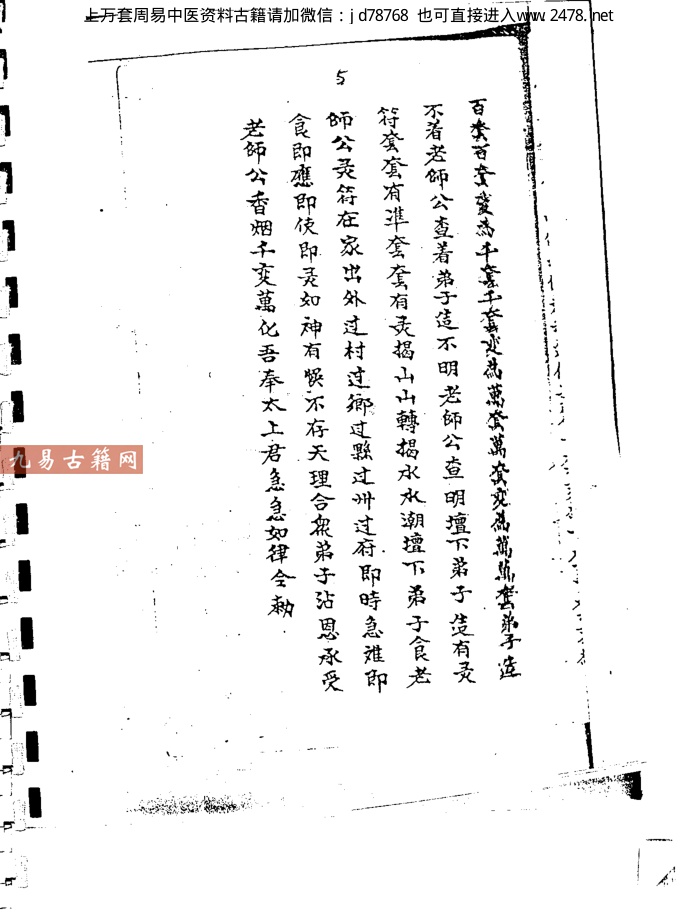 上万套周易中医资料古籍请加微信：jd78768 也可直接进入www.2478.net
5
百套百套變為千套千套变為萬套萬套变為萬萬套弟子造
不着老師公查着弟子造不明老師公查明壇下弟子造有灵
符套套有準套套有灵揭山山轉揭水水潮壇下弟子食老
師公灵符在家出外过村过鄉过縣过州过府即時急难即
食即應即使即灵如神有悞不存天理合眾弟子沾恩承受
老師公香烟千变萬化吾奉太上君急急如律令勅
九易古籍网